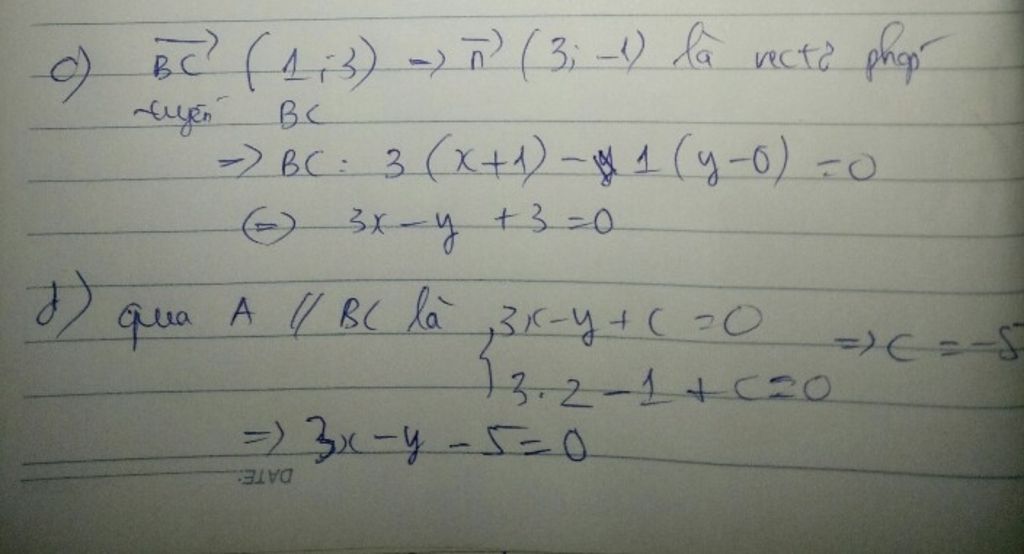 c) BC→ (1; 3) → n→ (3; -1) là vectơ pháp
tuyến BC
=> BC: 3(x+1) - 1(y-0) = 0
(=) 3x - y + 3 = 0
d) qua A // BC là { 3x - y + c = 0
3.2 - 1 + c = 0 => c = -5
=> 3x - y - 5 = 0
DATE: